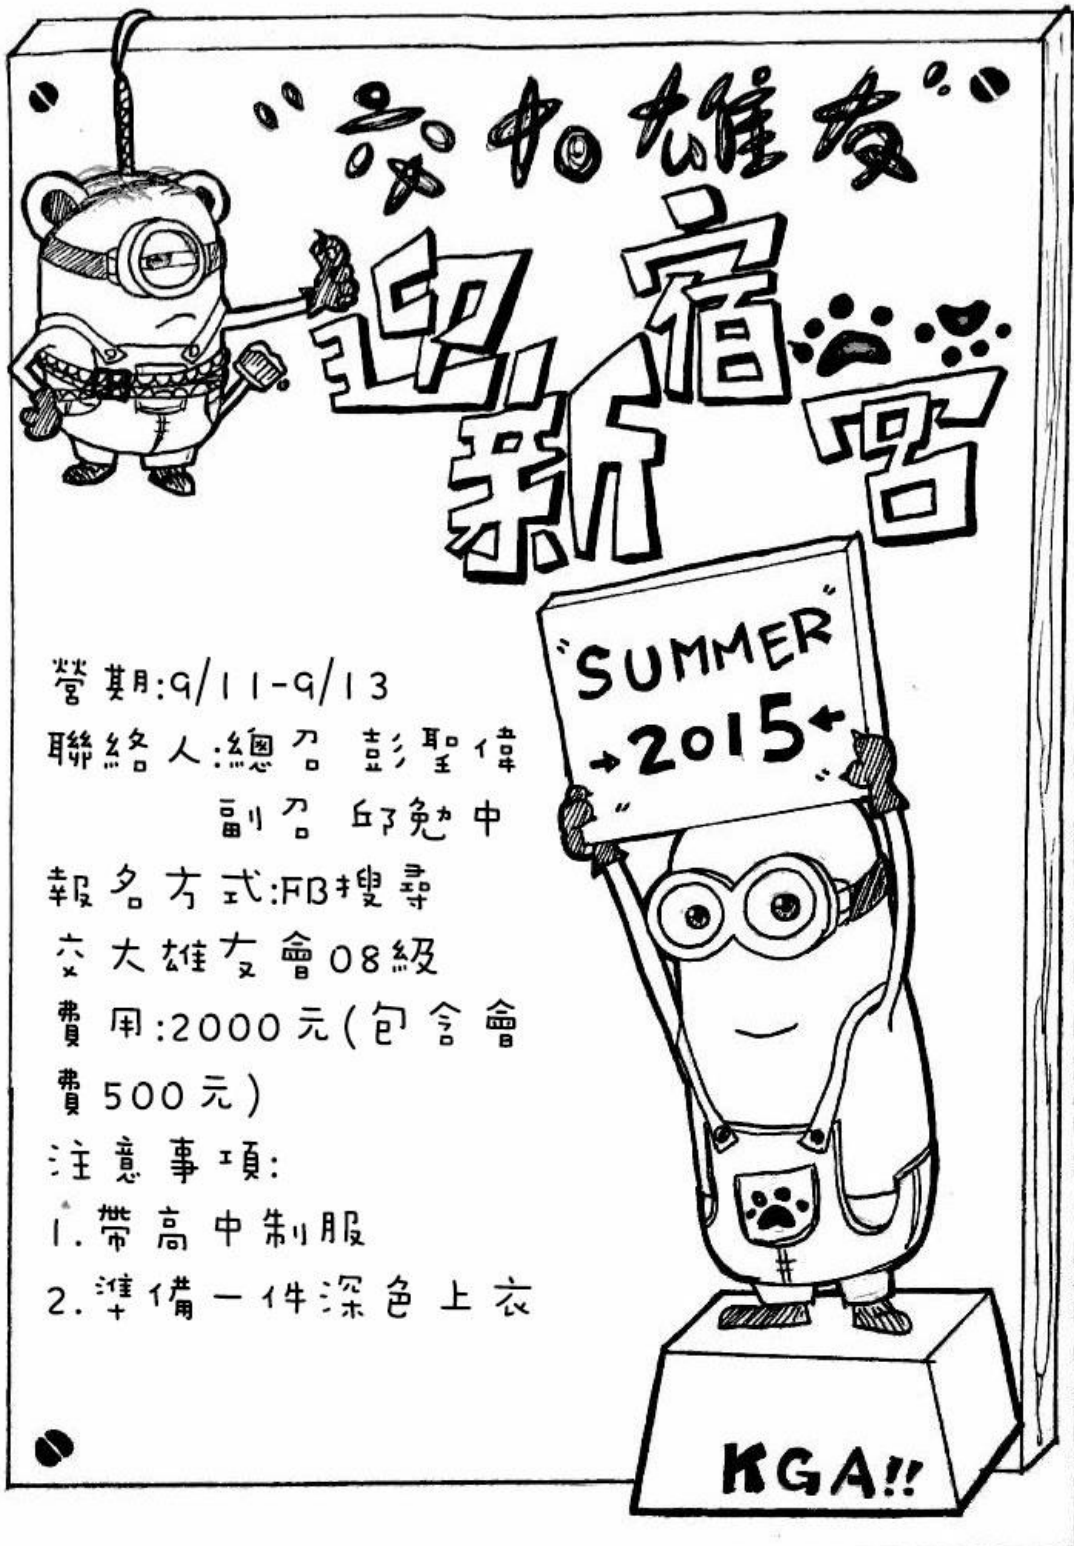 "交大雄友"
迎新宿宮
"SUMMER"
→2015←
營期:9/11-9/13
聯絡人:總召 彭聖偉
副召 邱勉中
報名方式:FB搜尋
交大雄友會08級
費用:2000元(包含會
費500元)
注意事項:
1.帶高中制服
2.準備一件深色上衣
KGA!!